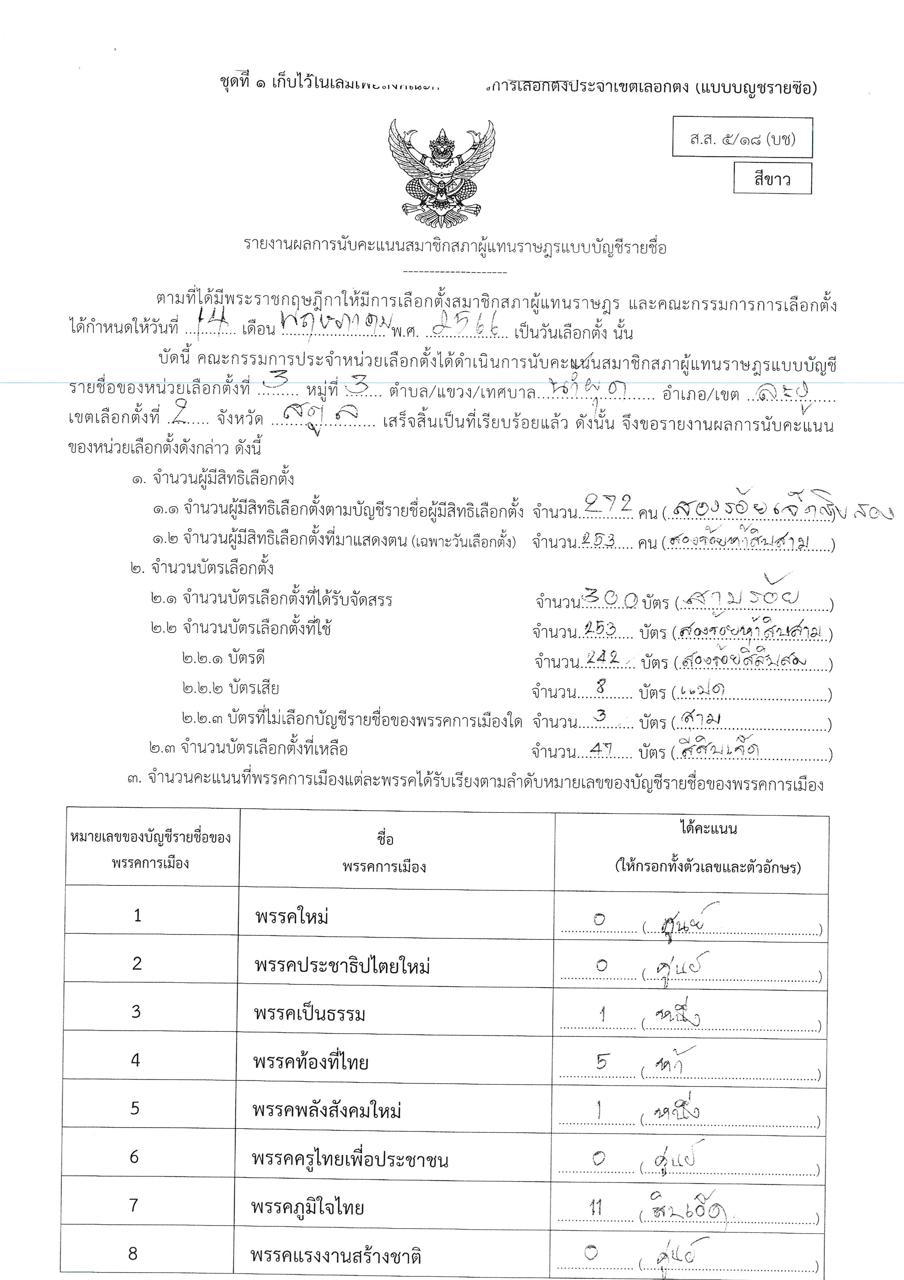 ชุดที่ ๑ เก็บไว้ในเล่มเพื่อส่งคณะก การเลือกตั้งประจำเขตเลือกตั้ง (แบบบัญชีรายชื่อ)
ส.ส. ๕/๑๘ (บช)
สีขาว
รายงานผลการนับคะแนนสมาชิกสภาผู้แทนราษฎรแบบบัญชีรายชื่อ
--------------------
ตามที่ได้มีพระราชกฤษฎีกาให้มีการเลือกตั้งสมาชิกสภาผู้แทนราษฎร และคณะกรรมการการเลือกตั้ง
ได้กำหนดให้วันที่ 14 เดือน พฤษภาคม พ.ศ. 2566 เป็นวันเลือกตั้ง นั้น
บัดนี้ คณะกรรมการประจำหน่วยเลือกตั้งได้ดำเนินการนับคะแนนสมาชิกสภาผู้แทนราษฎรแบบบัญชี
รายชื่อของหน่วยเลือกตั้งที่ 3 หมู่ที่ 3 ตำบล/แขวง/เทศบาล น้ำผุด อำเภอ/เขต ละงู
เขตเลือกตั้งที่ 2 จังหวัด สตูล เสร็จสิ้นเป็นที่เรียบร้อยแล้ว ดังนั้น จึงขอรายงานผลการนับคะแนน
ของหน่วยเลือกตั้งดังกล่าว ดังนี้
๑. จำนวนผู้มีสิทธิเลือกตั้ง
๑.๑ จำนวนผู้มีสิทธิเลือกตั้งตามบัญชีรายชื่อผู้มีสิทธิเลือกตั้ง จำนวน 272 คน (สองร้อยเจ็ดสิบสอง)
๑.๒ จำนวนผู้มีสิทธิเลือกตั้งที่มาแสดงตน (เฉพาะวันเลือกตั้ง) จำนวน 253 คน (สองร้อยห้าสิบสาม)
๒. จำนวนบัตรเลือกตั้ง
๒.๑ จำนวนบัตรเลือกตั้งที่ได้รับจัดสรร จำนวน 300 บัตร (สามร้อย)
๒.๒ จำนวนบัตรเลือกตั้งที่ใช้ จำนวน 253 บัตร (สองร้อยห้าสิบสาม)
๒.๒.๑ บัตรดี จำนวน 242 บัตร (สองร้อยสี่สิบสอง)
๒.๒.๒ บัตรเสีย จำนวน 8 บัตร (แปด)
๒.๒.๓ บัตรที่ไม่เลือกบัญชีรายชื่อของพรรคการเมืองใด จำนวน 3 บัตร (สาม)
๒.๓ จำนวนบัตรเลือกตั้งที่เหลือ จำนวน 47 บัตร (สี่สิบเจ็ด)
๓. จำนวนคะแนนที่พรรคการเมืองแต่ละพรรคได้รับเรียงตามลำดับหมายเลขของบัญชีรายชื่อของพรรคการเมือง
หมายเลขของบัญชีรายชื่อของ ชื่อ ได้คะแนน
พรรคการเมือง พรรคการเมือง (ให้กรอกทั้งตัวเลขและตัวอักษร)
1 พรรคใหม่ 0 (ศูนย์)
2 พรรคประชาธิปไตยใหม่ 0 (ศูนย์)
3 พรรคเป็นธรรม 1 (หนึ่ง)
4 พรรคท้องที่ไทย 5 (ห้า)
5 พรรคพลังสังคมใหม่ 1 (หนึ่ง)
6 พรรคครูไทยเพื่อประชาชน 0 (ศูนย์)
7 พรรคภูมิใจไทย 11 (สิบเอ็ด)
8 พรรคแรงงานสร้างชาติ 0 (ศูนย์)